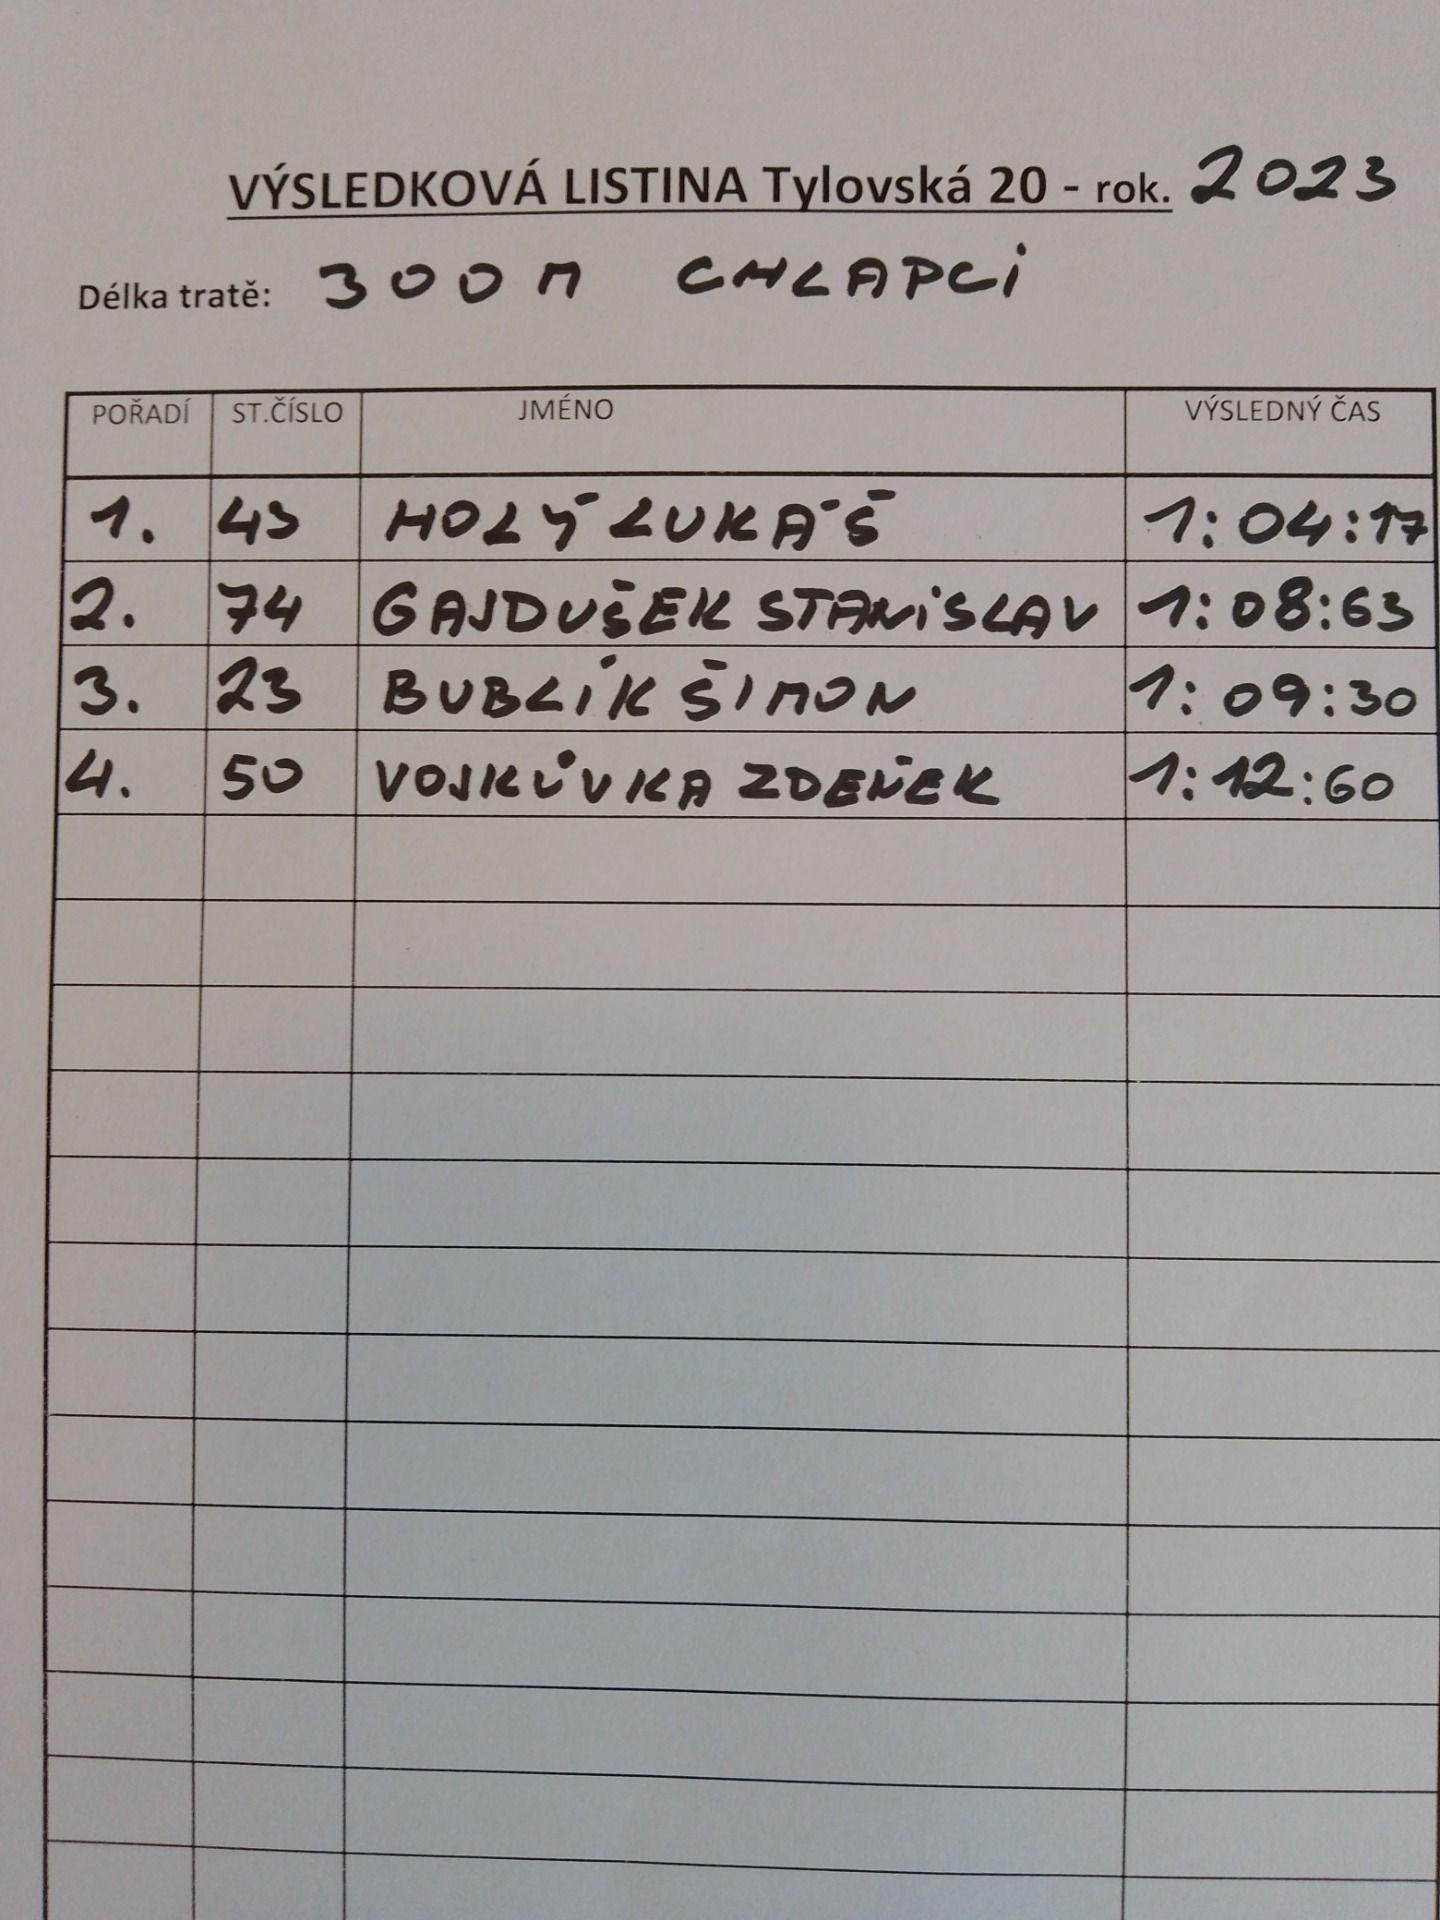 VÝSLEDKOVÁ LISTINA Tylovská 20 - rok. 2023
Délka tratě: 300M CHLAPCI
POŘADÍ ST.ČÍSLO JMÉNO VÝSLEDNÝ ČAS
1. 43 HOLÝ LUKÁŠ 1:04:17
2. 74 GAJDUŠEK STANISLAV 1:08:63
3. 23 BUBLÍK ŠIMON 1:09:30
4. 50 VOJKŮVKA ZDENĚK 1:12:60